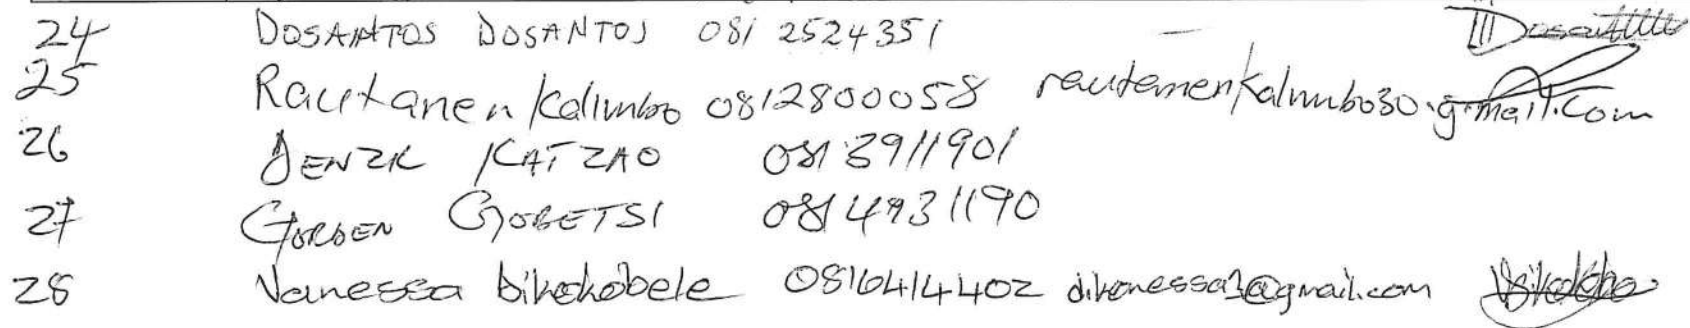 24 DOSANTOS DOSANTOS 081 2524351 —
25 Rautanen Kalimbo 0812800058 rautanenkalimbo30.gmail.com
26 DENZIL KATZAO 0813911901
27 GORDEN GOBETSI 0814931190
28 Vanessa Dikokobele 0816414402 dikanessa1@gmail.com